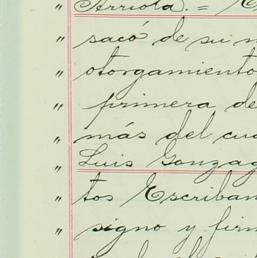 " Arriola. = E
" sacó de su m
" otorgamiento
" primera de
" más del cua
" Luis Gonzag
" tos Escriban
" signo y firm
"